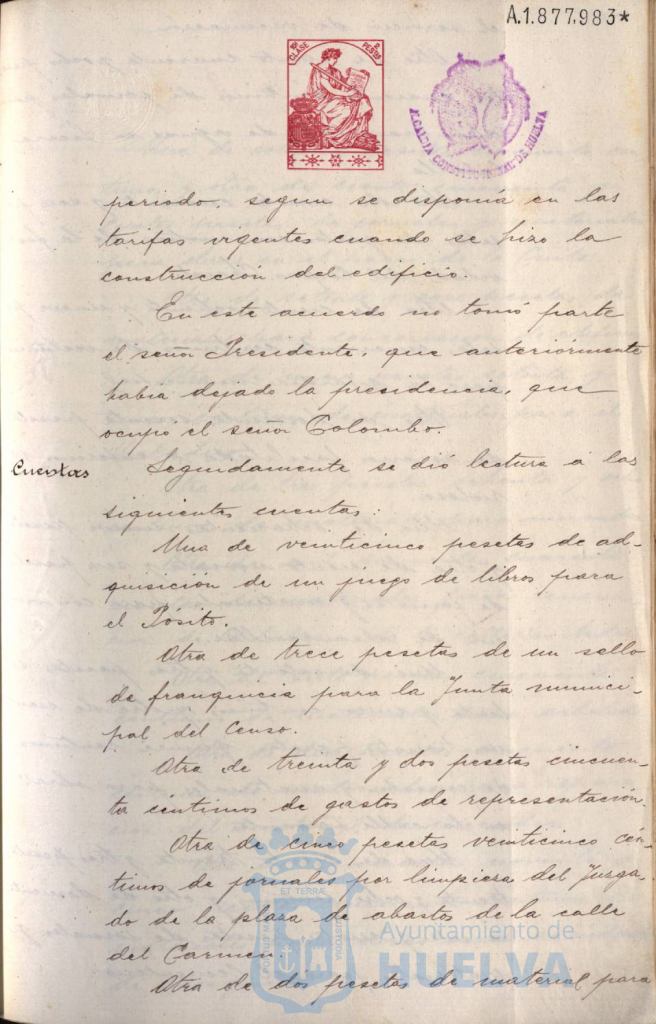 A.1.877,983*
10ª CLASE
2 PESTAS
ALCALDIA CONSTITUCIONAL DE HUELVA
periodo, segun se disponía en las
tarifas vigentes cuando se hizo la
construcción del edificio.
En este acuerdo no tomó parte
el señor Presidente, que anteriormente
habia dejado la presidencia, que
ocupó el señor Colombo.
Cuentas
Seguidamente se dió lectura á las
siguientes cuentas:
Una de veinticinco pesetas de ad-
quisición de un juego de libros para
el Pósito.
Otra de trece pesetas de un sello
de franquicia para la Junta munici-
pal del Censo.
Otra de treinta y dos pesetas cincuen-
ta céntimos de gastos de representación.
Otra de cinco pesetas veinticinco cén-
timos de jornales por limpieza del Juzga-
do de la plaza de abastos de la calle
del Carmen.
Otra de dos pesetas de material para
ET TERRÆ
CUSTODIA
Ayuntamiento de
HUELVA